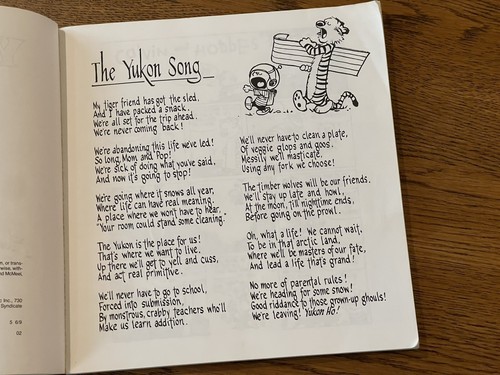 The Yukon Song
My tiger friend has got the sled,
And I have packed a snack.
We're all set for the trip ahead.
We're never coming back!
We're abandoning this life we've led!
So long, Mom and Pop!
We're sick of doing what you've said,
And now it's going to stop!
We're going where it snows all year,
Where life can have real meaning.
A place where we won't have to hear,
"Your room could stand some cleaning."
The Yukon is the place for us!
That's where we want to live.
Up there we'll get to yell and cuss,
And act real primitive.
We'll never have to go to school,
Forced into submission,
By monstrous, crabby teachers who'll
Make us learn addition.
We'll never have to clean a plate,
Of veggie glops and goos.
Messily we'll masticate,
Using any fork we choose!
The timber wolves will be our friends.
We'll stay up late and howl,
At the moon, till nighttime ends,
Before going on the prowl.
Oh, what a life! We cannot wait,
To be in that arctic land,
Where we'll be masters of our fate,
And lead a life that's grand!
No more of parental rules!
We're heading for some snow!
Good riddance to those grown-up ghouls!
We're leaving! Yukon Ho!
n, or trans-
rwise, with-
d McMeel,
Inc., 730
Syndicate
92